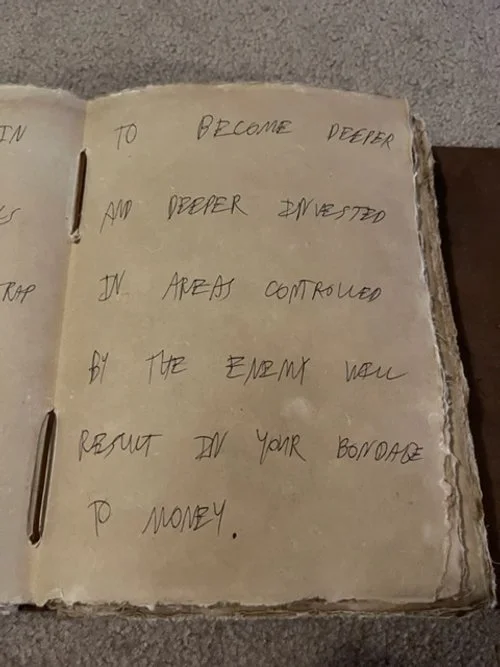 IN
TRAP
TO BECOME DEEPER
AND DEEPER INVESTED
IN AREAS CONTROLLED
BY THE ENEMY WILL
RESULT IN YOUR BONDAGE
TO MONEY.